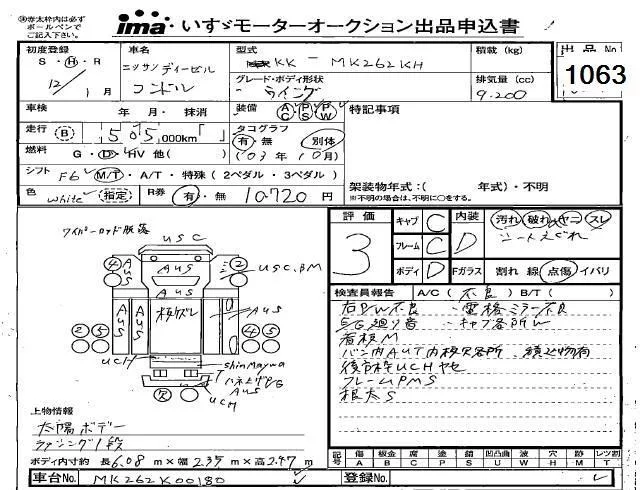 ㊟赤太枠内は必ず
ボールペンで
ご記入下さい。
ima いすゞモーターオークション出品申込書
初度登録 車名 型式 積載(kg) 出品No
S・H・R ニッサンディーゼル KK - MK262KH 1063
12/1月 コンドル グレード・ボディ形状 排気量(cc)
ウイング 9.200
車検 年 月・抹消 装備 AC PS PW 特記事項
走行 B 505,000km タコグラフ
有・無 別体
燃料 G・D・HV 他( ) ('03年10月)
シフト F6 M/T・A/T・特殊(2ペダル・3ペダル)
架装物年式:( 年式)・不明
※不明の場合は、不明に○をする。
色 white 指定 R券 有・無 10720円
評価 キャブ C 内装 汚れ 破れ ヤニ スレ
3 フレーム C D シートえぐれ
ボディ D Fガラス 割れ 線 点傷 イバリ
ワイパーロッド脱落
USC
④ AUS AUS ② USC,BM
AUS AUS AUS
②⑤ ④⑤
UCH shinMaywa
AUS
UCH
検査員報告 A/C(不良) B/T( )
右PW不良 ・電格ミラー不良
E/G廻り音 ・キャブ各所W
看板M
バン内AUT内板欠各所
フレームPMS
根太S
上物情報
太陽ボデー
ラッシング1段
ボディ内寸約 長6.08m×幅2.35m×高2.47m
記号 傷 板金 腐 塗 錆 凹凸曲 波 穴 跡 レツ割
A B C P S U W H M T
車台No. MK262K00180 登録No.